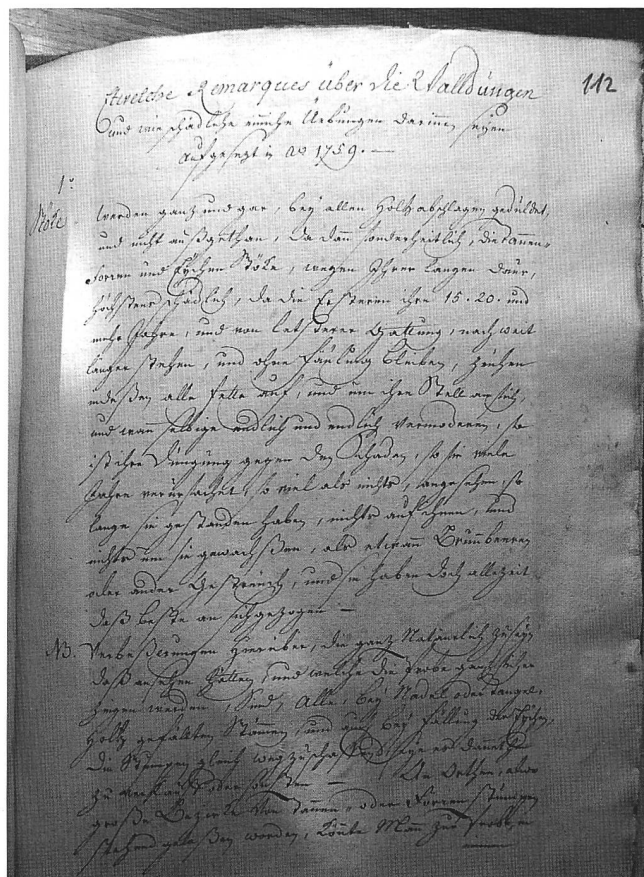 Etwelche Remarques über die Walldungen 112
und wie schädliche einiche Uebungen darinnen seyen
aufgesezt in ao 1759. —
1°
Stöke werden ganz und gar, bey allen Holtzabschlagen geduldet,
und nicht außgethan, da dann sonderheitlich, die tannen-
Forren und Eychen Stöke, wegen Ihrer langen daur,
höchstens schädlich, da die Ersteren ihre 15. 20. und
mehr Jahre, und von letsterer Gattung, noch weit
länger stehen, und ohne Fäulung bleiben, ziehen
indeßen alle fette auf, und um ihre Stell an sich,
und wann selbige endlich und endlich vermoderen, so
ist ihre Düngung gegen den Schaden, so sie viele
Jahre verursachet, so viel als nichts, angesehen, so
lange sie gestanden haben, nichts auf ihnen, und
nichts um sie gewachsen, als etwann Brummbeeren
oder ander Gesträuch, und sie haben doch allezeit
daß beste an sich gezogen —
NB. Verbeßerungen hierüber, die ganz Natürlich zu seyn
daß ansehen hätten, und welche die Probe ganz sicher
zeigen werden, sind, Alle, bey Nadel oder Tangel-
Holtz gefällten Stämmen, und auch bey fällung der Eychen,
die Stumpen gleich wegzuschaffen, seye es dannethin
zu verkauff oder sonsten — An Orthen, etwo
große Bezirke von tannen- oder Forrenstumpen
stehend gelaßen worden, könte Mann zur Probe